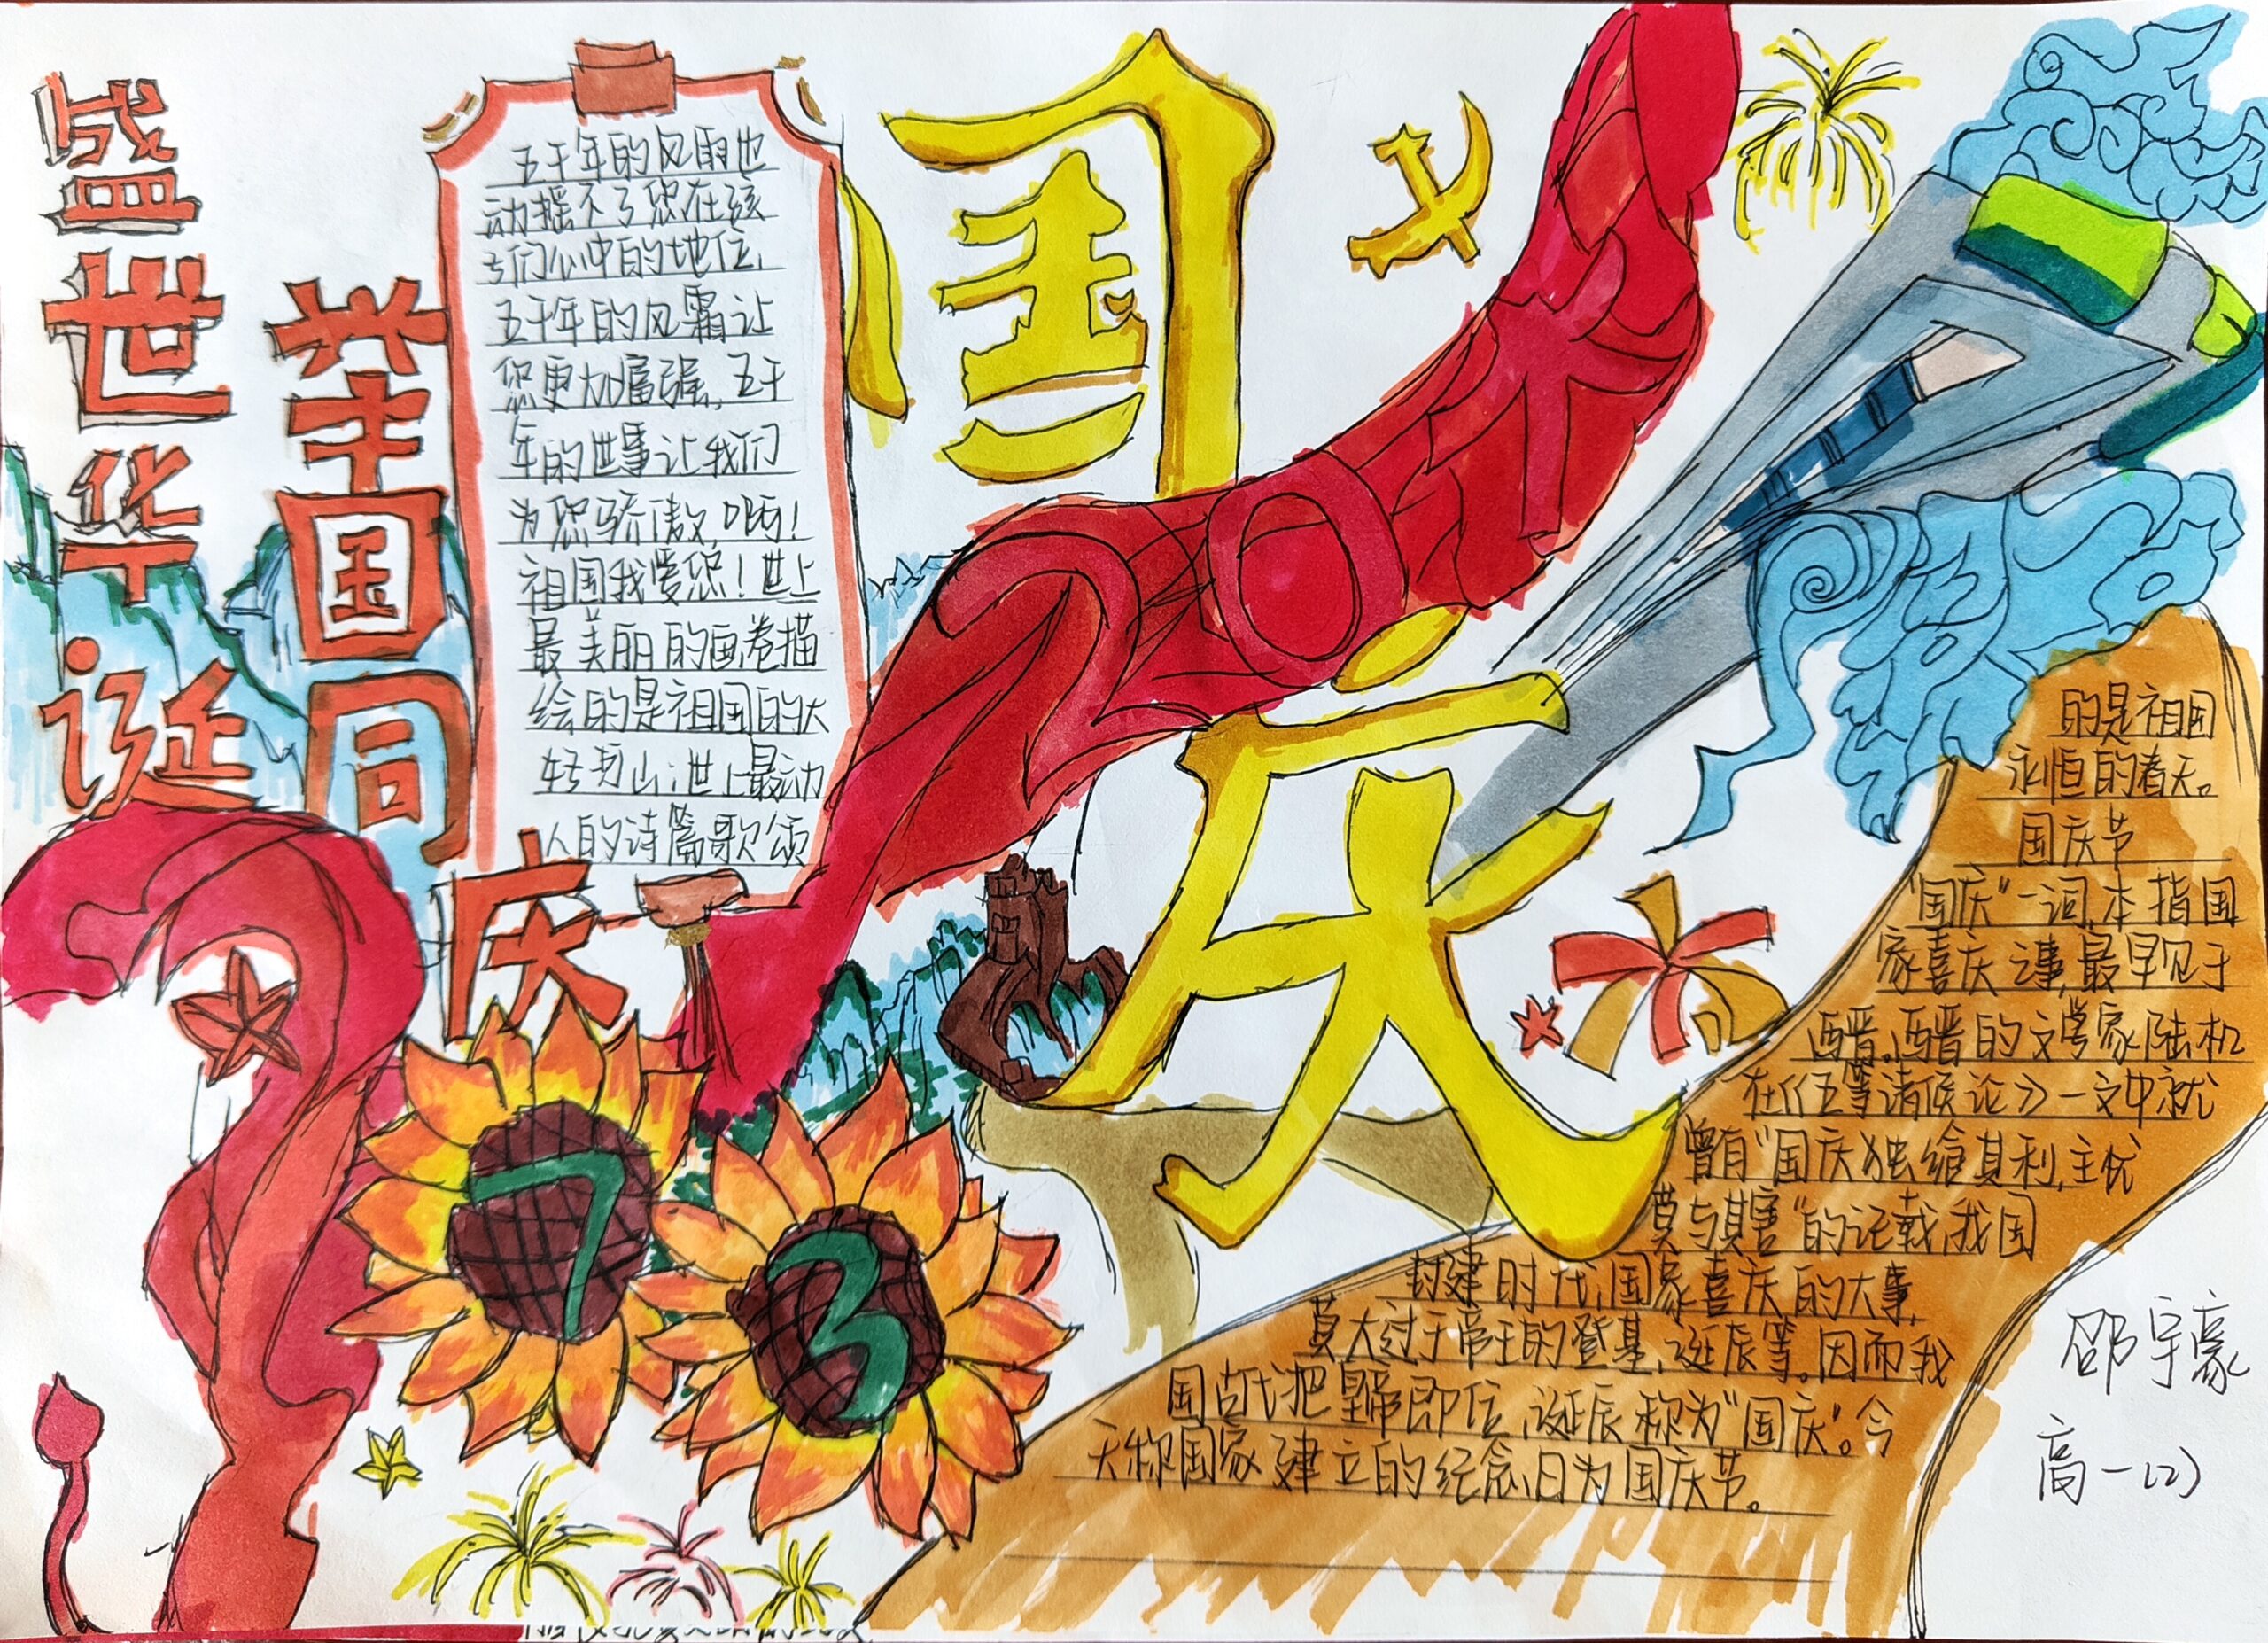 盛世华诞
举国同庆
五千年的风雨也
动摇不了您在孩
子们心中的地位,
五千年的风霜让
您更加富强,五千
年的世事让我们
为您骄傲,啊!
祖国我爱您!世上
最美丽的画卷描
绘的是祖国的大
好河山;世上最动
人的诗篇歌颂
国
庆
73
的是祖国
永恒的春天。
国庆节
“国庆”一词,本指国
家喜庆之事,最早见于
西晋。西晋的文学家陆机
在《五等诸侯论》一文中就
曾有“国庆独飨其利,主忧
莫与其害”的记载,我国
封建时代,国家喜庆的大事,
莫大过于帝王的登基、诞辰等。因而我
国古代把皇帝即位、诞辰称为“国庆”。今
天称国家建立的纪念日为国庆节。
邵宇豪
高一(2)